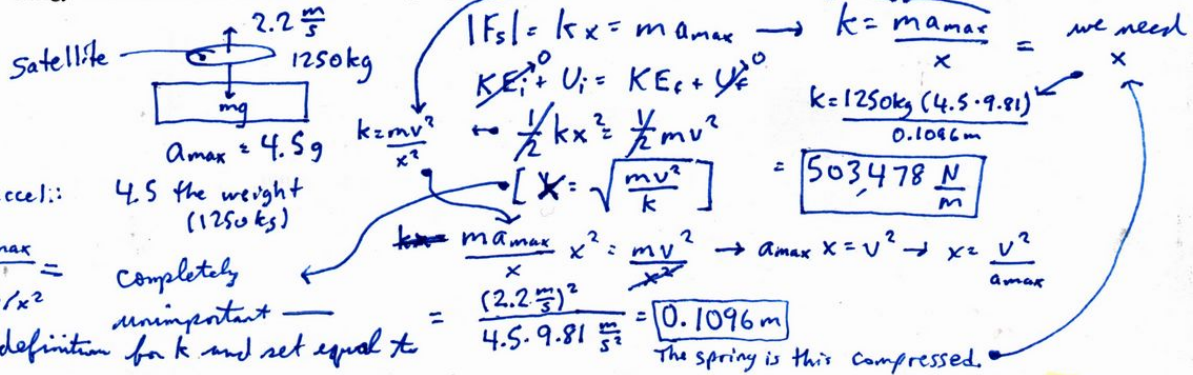 2.2 m/s
Satellite
1250kg
mg
amax = 4.5g
ccel.: 4.5 the weight
(1250 kg)
max =
/x²
completely
unimportant
definition for k and set equal to
|Fs| = kx = m amax → k = m amax / x = we need x
KEi⁰ + Ui = KEf + Uf⁰
k = mv²/x² ← 1/2 kx² = 1/2 mv²
[X = √(mv²/k)]
k = 1250kg (4.5·9.81) / 0.1096m
= 503,478 N/m
m amax / x x² = mv² / x² → amax x = v² → x = v²/amax
= (2.2 m/s)² / 4.5·9.81 m/s² = 0.1096 m
The spring is this compressed.